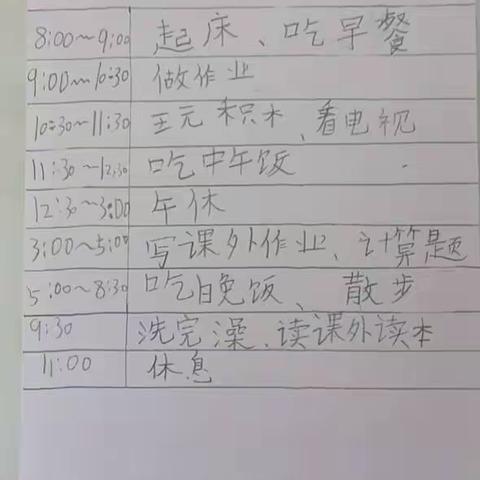 8:00~9:00 起床、吃早餐
9:00~10:30 做作业
10:30~11:30 王元积木、看电视
11:30~12:30 吃中午饭
12:30~3:00 午休
3:00~5:00 写课外作业、计算题
5:00~8:30 吃晚饭、散步
9:30 洗完澡、读课外读本
11:00 休息